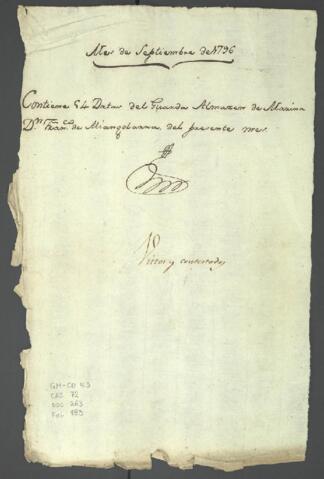 Mes de Septiembre de 1796
Contiene 54 Datas del Guarda Almazen de Marina
Dn. Franco. de Miangolarra, del presente mes.
Vistos y contextados
GM-CO 43
CAJ 72
DOC 263
Fol 193